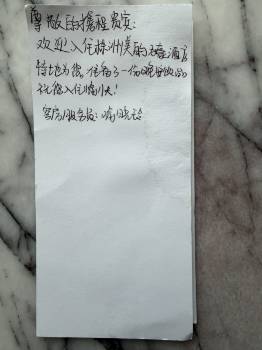 尊敬的携程贵宾:
欢迎入住株洲美的万豪酒店
特地为您准备了一份晚安饮品
祝您入住愉快!
客房服务员: